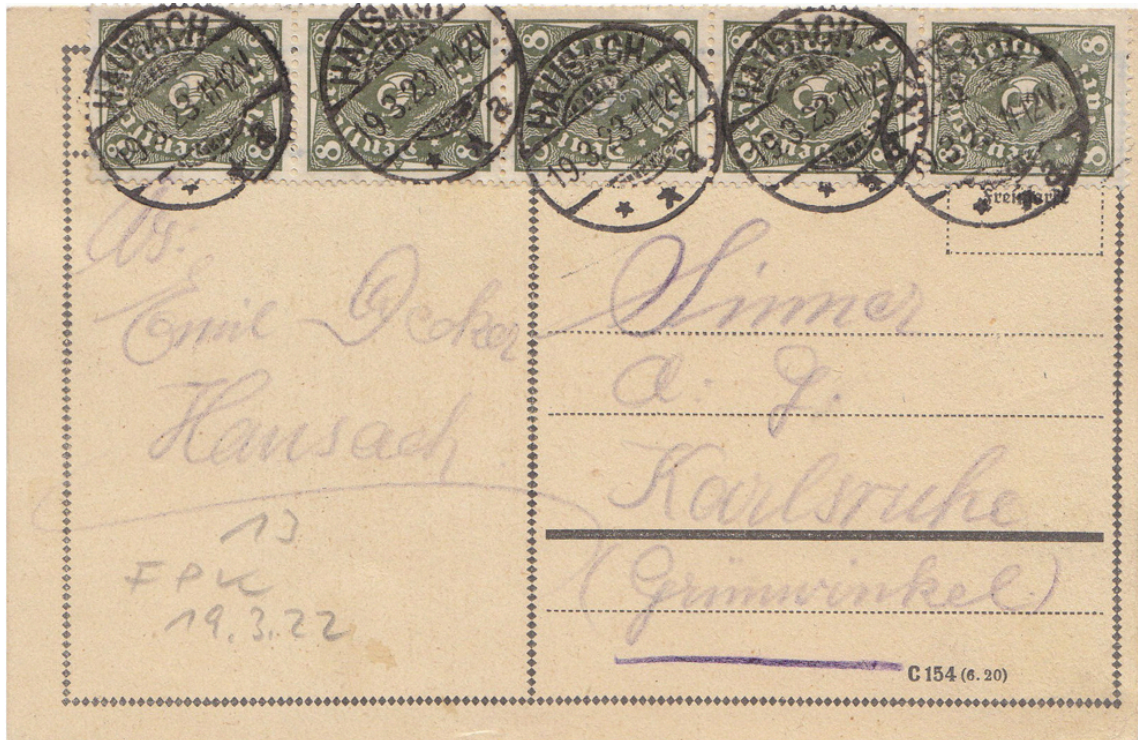 HAUSACH
19.3.23.11-12V.
* * a
HAUSACH
19.3.23.11-12V.
* * a
HAUSACH
19.3.23.11-12V.
* * a
HAUSACH
19.3.23.11-12V.
* * a
19.3. 11-12V.
* * a
8 8 8 8 8
Deutsches Reich
Freimarke
Abs:
Emil Decker
Hausach
13
FPK
19.3.22
Sinner
A. G.
Karlsruhe
(Grünwinkel)
C 154 (6.20)